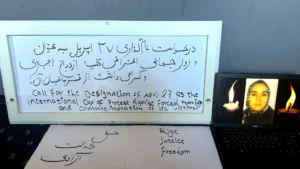 درخواست نامگذاری ۲۷ اپریل به عنوان
روز جهانی اعتراض علیه ازدواج اجباری
و گرامی داشت از قربانیان آن!
Call for the Designation of April 27 as the
international Day of Protest Against Forced Marriage
and Commemoration of its victims
حق
عدالت
Justice
آزادی
freedom